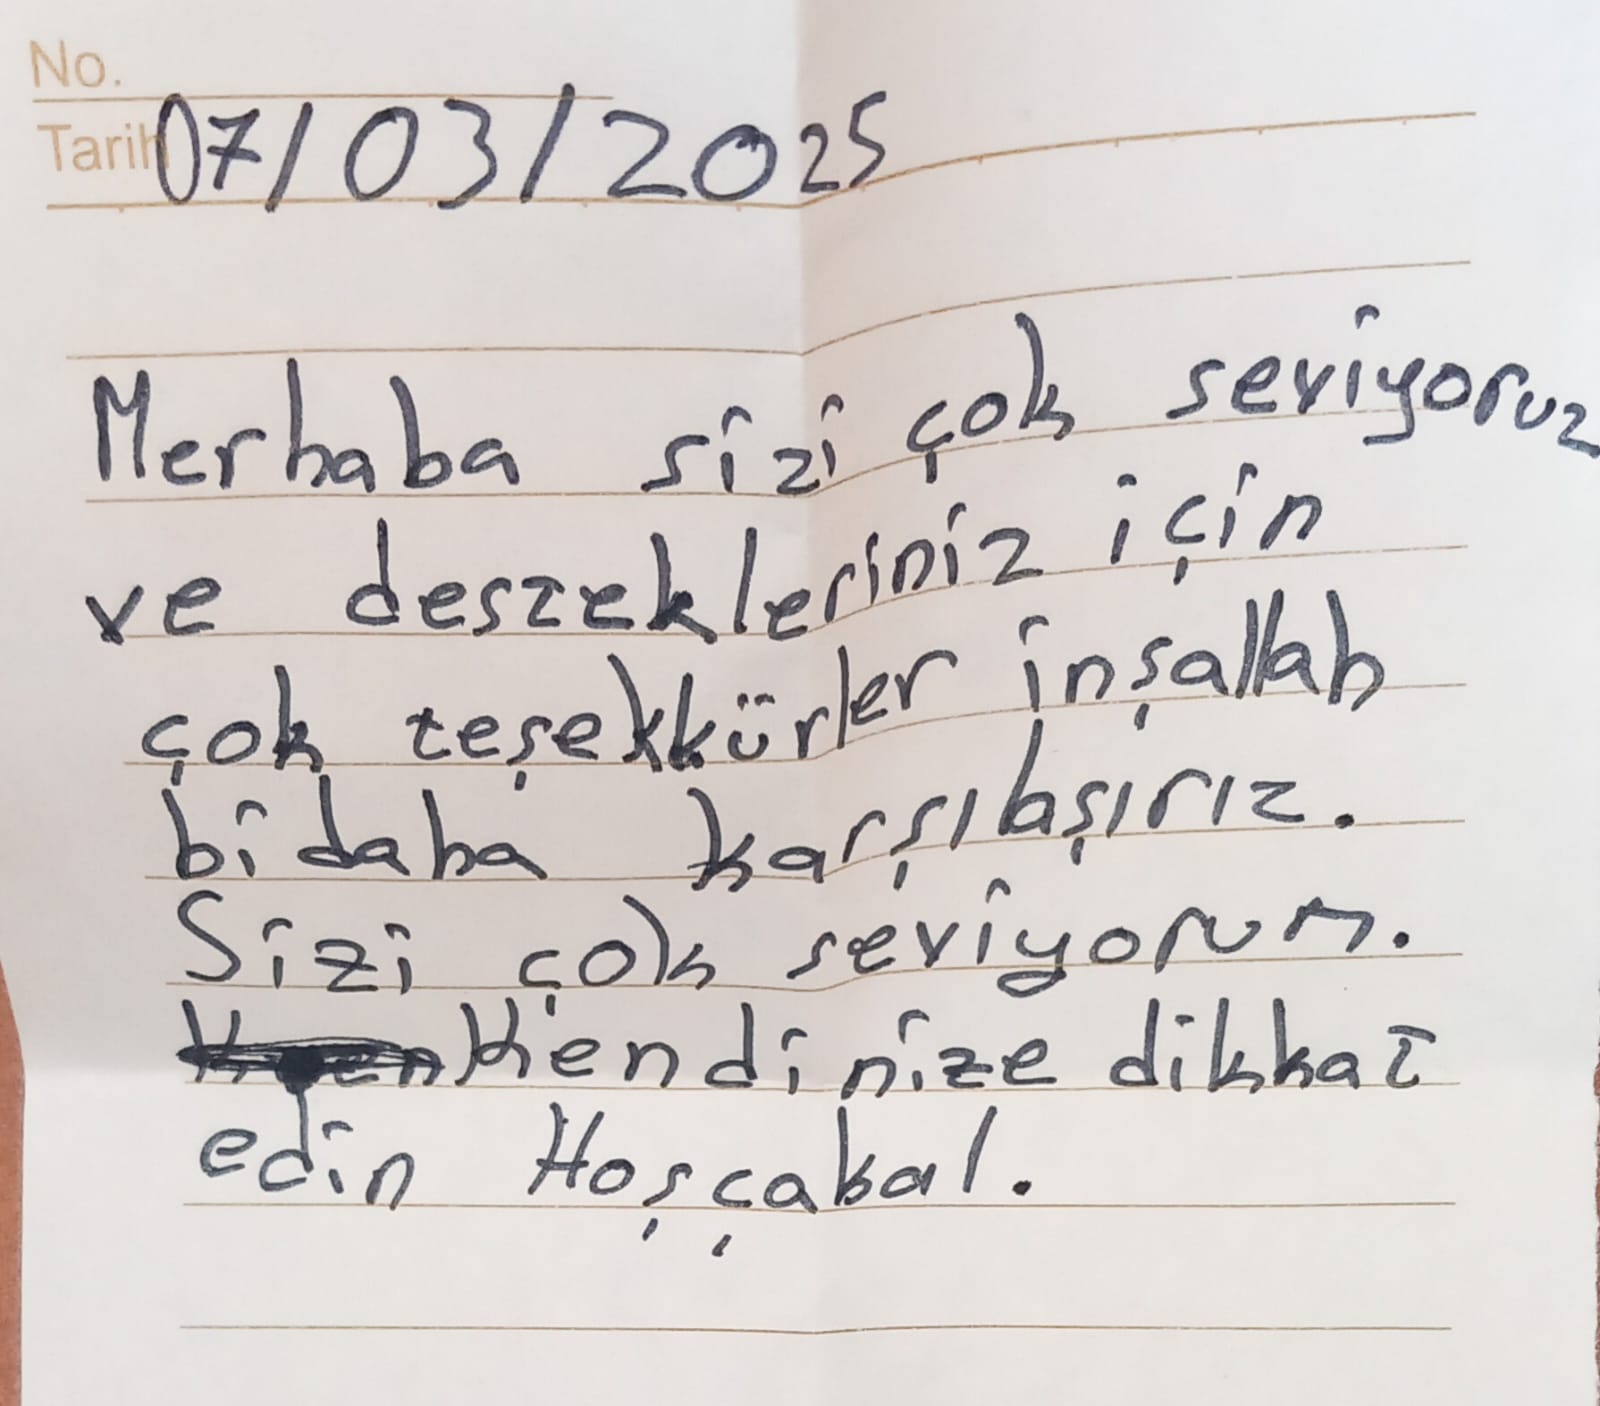 No.
Tarih 07/03/2025
Merhaba sizi çok seviyoruz
ve destekleriniz için
çok teşekkürler inşallah
bi daha karşılaşırız.
Sizi çok seviyorum.
Kendinize dikkat
edin Hoşçakal.